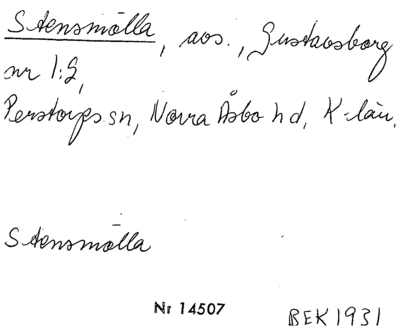 Stensmölla, avs., Gustavsborg
nr 1:2,
Perstorps sn, Norra Åsbo hd, K-län.
Stensmölla
Nr 14507
BEK 1931